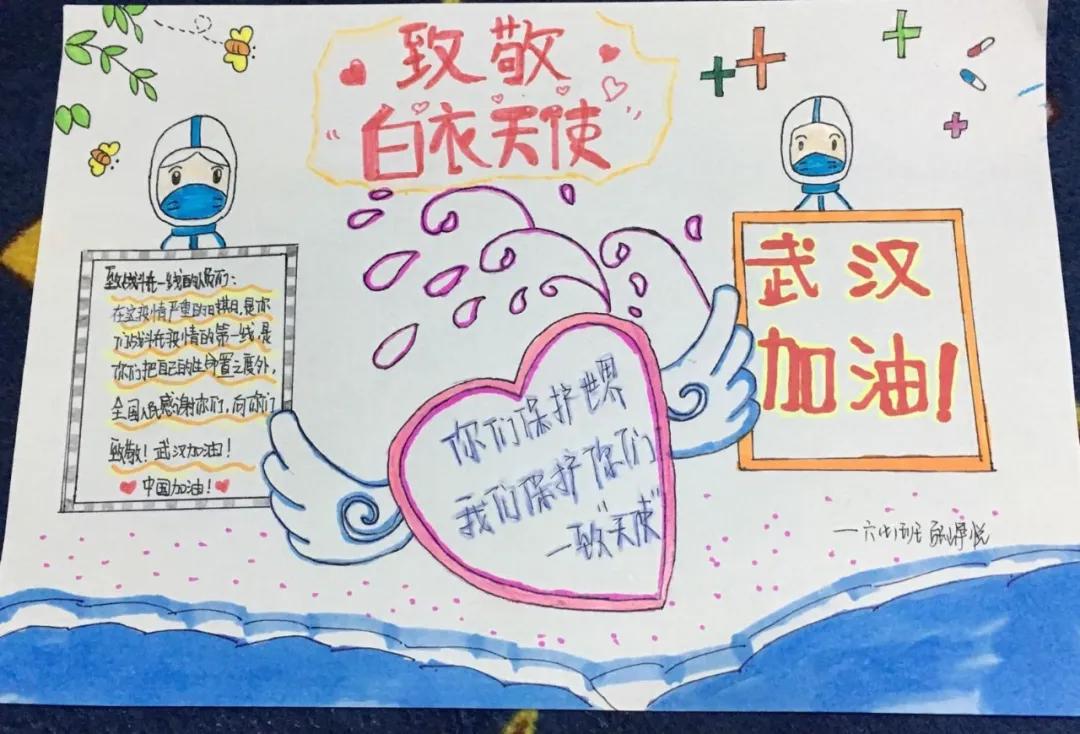 致敬
白衣天使
致战斗在一线的人员们：
在这疫情严重的日期日,是你
们战斗在疫情的第一线,是
你们把自己的生命置之度外,
全国人民感谢你们,向你们
致敬！武汉加油！
中国加油！
你们保护世界
我们保护你们
一致"天使"
武汉
加油!
—六(1)班